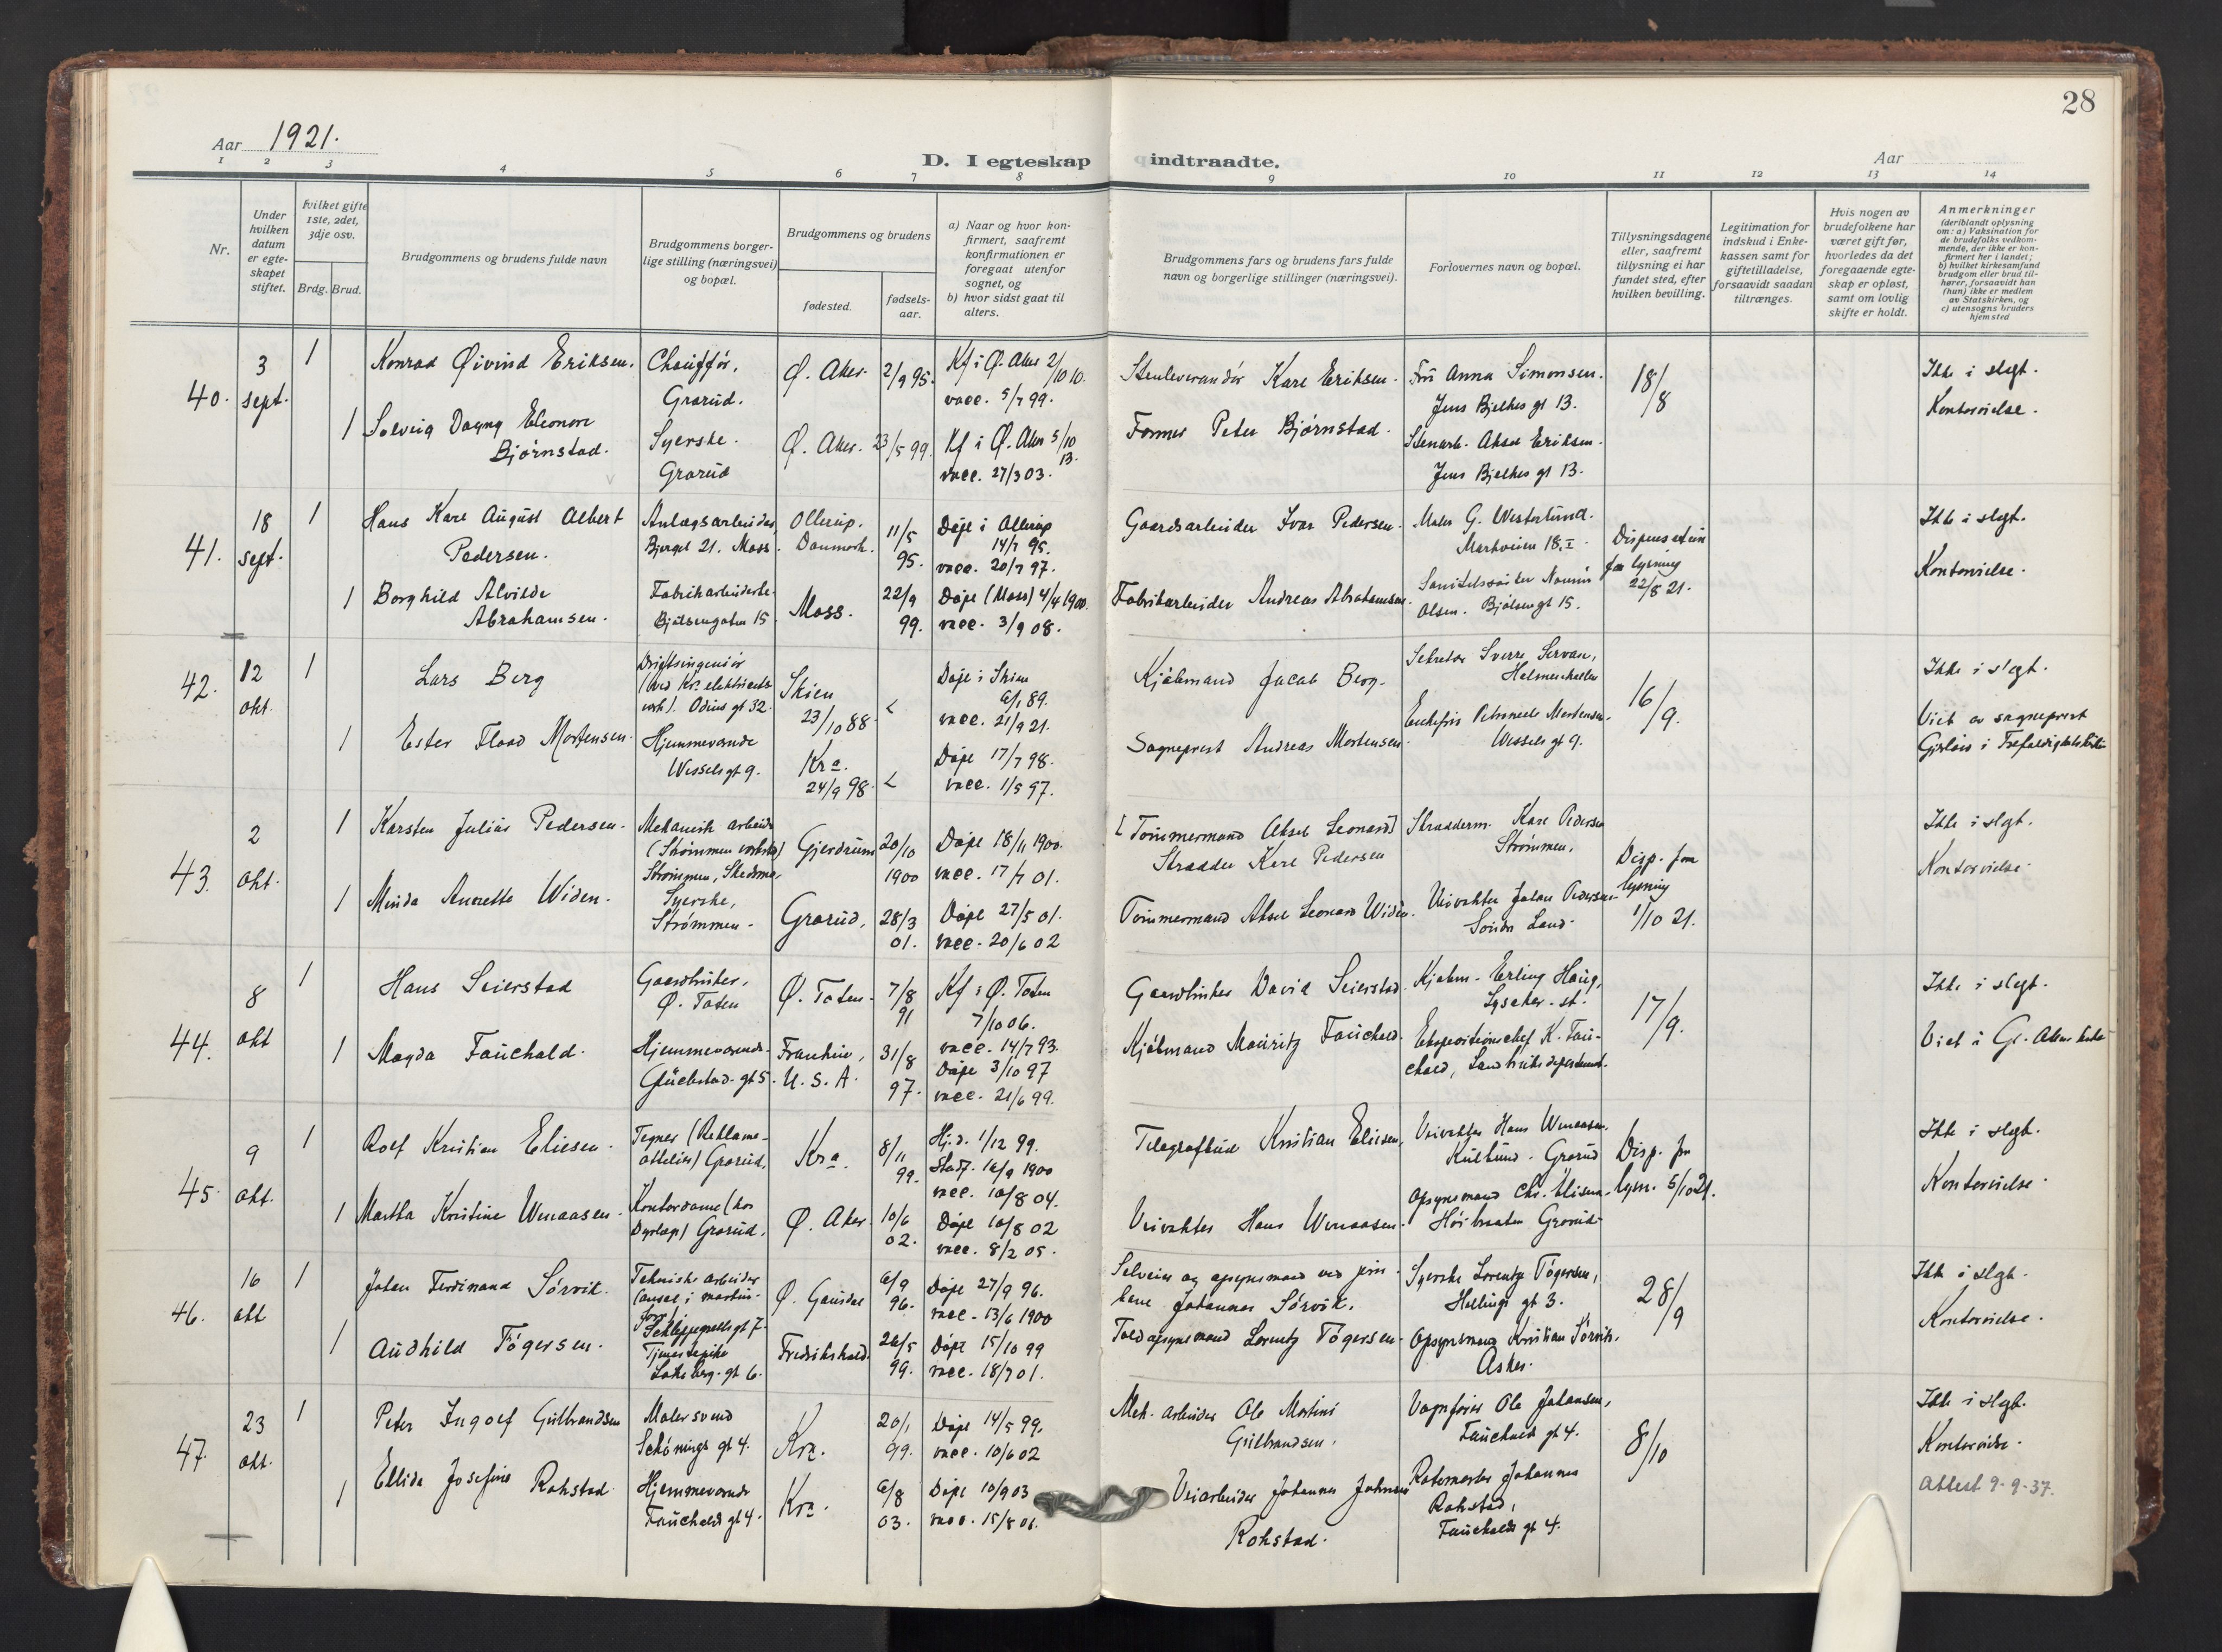 28
Aar 1921.
D. I egteskap indtraadte.
Aar
1 2 3 4 5 6 7 8 9 10 11 12 13 14
Nr.
Under hvilken datum er egteskapet stiftet.
hvilket gifte 1ste, 2det, 3dje osv.
Brdg. Brud.
Brudgommens og brudens fulde navn
Brudgommens borgerlige stilling (næringsvei) og bopæl.
Brudgommens og brudens
fødested.
fødselsaar.
a) Naar og hvor konfirmert, saafremt konfirmationen er foregaat utenfor sognet, og
b) hvor sidst gaat til alters.
Brudgommens fars og brudens fars fulde navn og borgerlige stillinger (næringsvei).
Forlovernes navn og bopæl.
Tillysningsdagene eller, saafremt tillysning ei har fundet sted, efter hvilken bevilling.
Legitimation for indskud i Enkekassen samt for giftetilladelse, forsaavidt saadan tiltrænges.
Hvis nogen av brudefolkene har været gift før, hvorledes da det foregaaende egteskap er opløst, samt om lovlig skifte er holdt.
Anmerkninger (deriblandt oplysning om: a) Vaksination for de brudefolks vedkommende, der ikke er konfirmert her i landet; b) hvilket kirkesamfund brudgom eller brud tilhører, forsaavidt han (hun) ikke er medlem av Statskirken, og c) utensogns bruders hjemsted
40. 3 sept. 1 Konrad Øivind Eriksen. Chauffør, Grorud. Ø. Aker. 2/9 95. Kf i Ø. Aker 2/10 10. vacc. 5/7 99. Stenleverandør Karl Eriksen. Fru Anna Simonsen. Jens Bjelkes gt 13. 18/8 Ikke i slegt. Kontorvielse.
1 Solveig Dagny Eleonore Bjørnstad. Syerske. Grorud Ø. Aker. 23/5 99. Kf i Ø. Aker 5/10 13. vacc. 27/3 03. Former Peter Bjørnstad. Stenarb. Aksel Eriksen. Jens Bjelkes gt 13.
41. 18 sept. 1 Hans Karl August Albert Pedersen. Anlægsarbeider, Bjerget 21. Moss. Ollerup. Danmark. 11/5 95. Døpt i Ollerup 14/7 95. vacc. 20/7 97. Gaardsarbeider Ivar Pedersen. Maler G. Westerlund. Markveien 18, I. Dispensation fra lysning 22/8 21. Ikke i slegt. Kontorvielse.
1 Borghild Alvilde Abrahamsen. Fabrikarbeiderske. Bjølsengaten 15 Moss. 22/9 99. Døpt (Moss) 4/4 1900. vacc. 3/9 08. Fabrikarbeider Andreas Abrahamsen. Olsen. Bjølsengt 15.
42. 12 okt. 1 Lars Berg Driftsingeniør (ved Kra elektricitetsverk). Odins gt 32. Skien 23/10 88. Døpt i Skien 6/1 89. vacc. 21/9 21. Kjøbmand Jacob Berg. Sekretær Sverre Servan, Holmenkollen 16/9. Ikke i slegt. Viet av sogneprest i Trefoldighetskirken
1 Ester Flood Mortensen. Hjemmeværende Wessels gt 9. Kra. 24/9 98. Døpt 17/7 98. vacc. 1/5 97. Sogneprest Andreas Mortensen. Enkefru Mortensen. Wessels gt 9.
43. 2 okt. 1 Karsten Julius Pedersen. Mekanisk arbeider (Strømmen verksted) Strømmen, Skedsmo, Gjerdrum 20/10 1900 Døpt 18/11 1900. vacc. 17/7 01. [Tømmermand Aksel Leonard] Skrædder Karl Pedersen Skrædderm. Karl Pedersen Strømmen. Disp. fra lysning 1/10 21. Ikke i slegt. Kontorvielse.
1 Minda Annette Widen. Syerske, Strømmen. Grorud. 28/3 01. Døpt 27/5 01. vacc. 20/6 02 Tømmermand Aksel Leonard Widen. Veivokter Johan Pedersen. Søndre Land.
44. 8 okt 1 Hans Seierstad Gaardbruker, Ø. Toten Ø. Toten. 7/8 91 Kf i Ø. Toten 7/10 06. vacc. 14/7 93. Gaardbruker David Seierstad. Kjøbm. Erling Haug, Lysaker st. 17/9. Ikke i slegt. Viet i Gl. Aker kirke
1 Magda Fauchald. Hjemmeværende. Glückstad. gt 5. U.S.A. 31/8 97. Døpt 3/10 97 vacc. 21/6 99. Kjøbmand Mauritz Fauchald. Ekspeditionschef K. Fauchald, Landbruksdepartement.
45. 9 okt. 1 Rolf Kristian Eliesen. Tegner (Reklameatteliér) Grorud. Kra. 8/11 99. Hj.d. 1/12 99. Stadf. 16/9 1900 vacc. 10/8 04. Telegrafbud Kristian Eliesen. Veivokter Hans Wenaasen. Grorud Disp. fra lysn. 5/10 21. Ikke i slegt. Kontorvielse.
1 Martha Kristine Wenaasen. Kontordame (hos) Grorud. Ø. Aker. 10/6 02. Døpt 10/8 02 vacc. 8/2 05. Veivokter Hans Wenaasen. Opsynsmand Chr. Eliesen. Høibraaten Grorud.
46. 16 okt 1 Johan Ferdinand Sørvik. Tekniske arbeider Schleppegrells gt 7. Ø. Gausdal 6/9 96. Døpt 27/9 96. vacc. 13/6 1900 Selveier og opsynsmand ved jernbane Johannes Sørvik. Syerske Lorentze Tøgersen, Hellings gt 3. 28/9 Ikke i slegt. Kontorvielse.
1 Audhild Tøgersen. Tjenestepike gt 6. Fredrikshald. 26/5 99. Døpt 15/10 99 vacc. 18/7 01. Toldopsynsmand Lorentz Tøgersen. Opsynsmand Kristian Sørvik. Asker.
47. 23 okt. 1 Peter Ingolf Gulbrandsen Malersvend Schønings gt 4. Kra. 20/1 99. Døpt 14/5 99. vacc. 10/6 02 Mek. arbeider Ole Martini Gulbrandsen. Vognfører Ole Johansen, Fauchalds gt 4. 8/10 Ikke i slegt. Kontorvielse.
1 Ellida Josefine Rohstad. Hjemmeværende Fauchalds gt 4. Kra. 6/8 03. Døpt 10/9 03 vacc. 15/8 06. Veiarbeider Johannes Johnsen Rohstad. Rodemester Johannes Rohstad, Fauchalds gt 4. Attest 9-9-37.